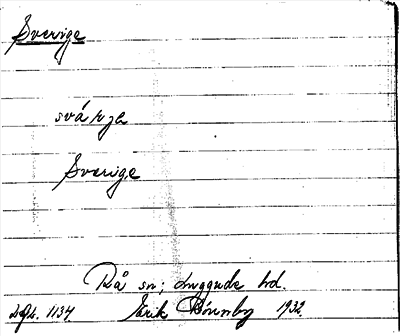 Sverige
svárje
Sverige
Rå sn; Luggude hd.
1134. Erik Rönnby 1932